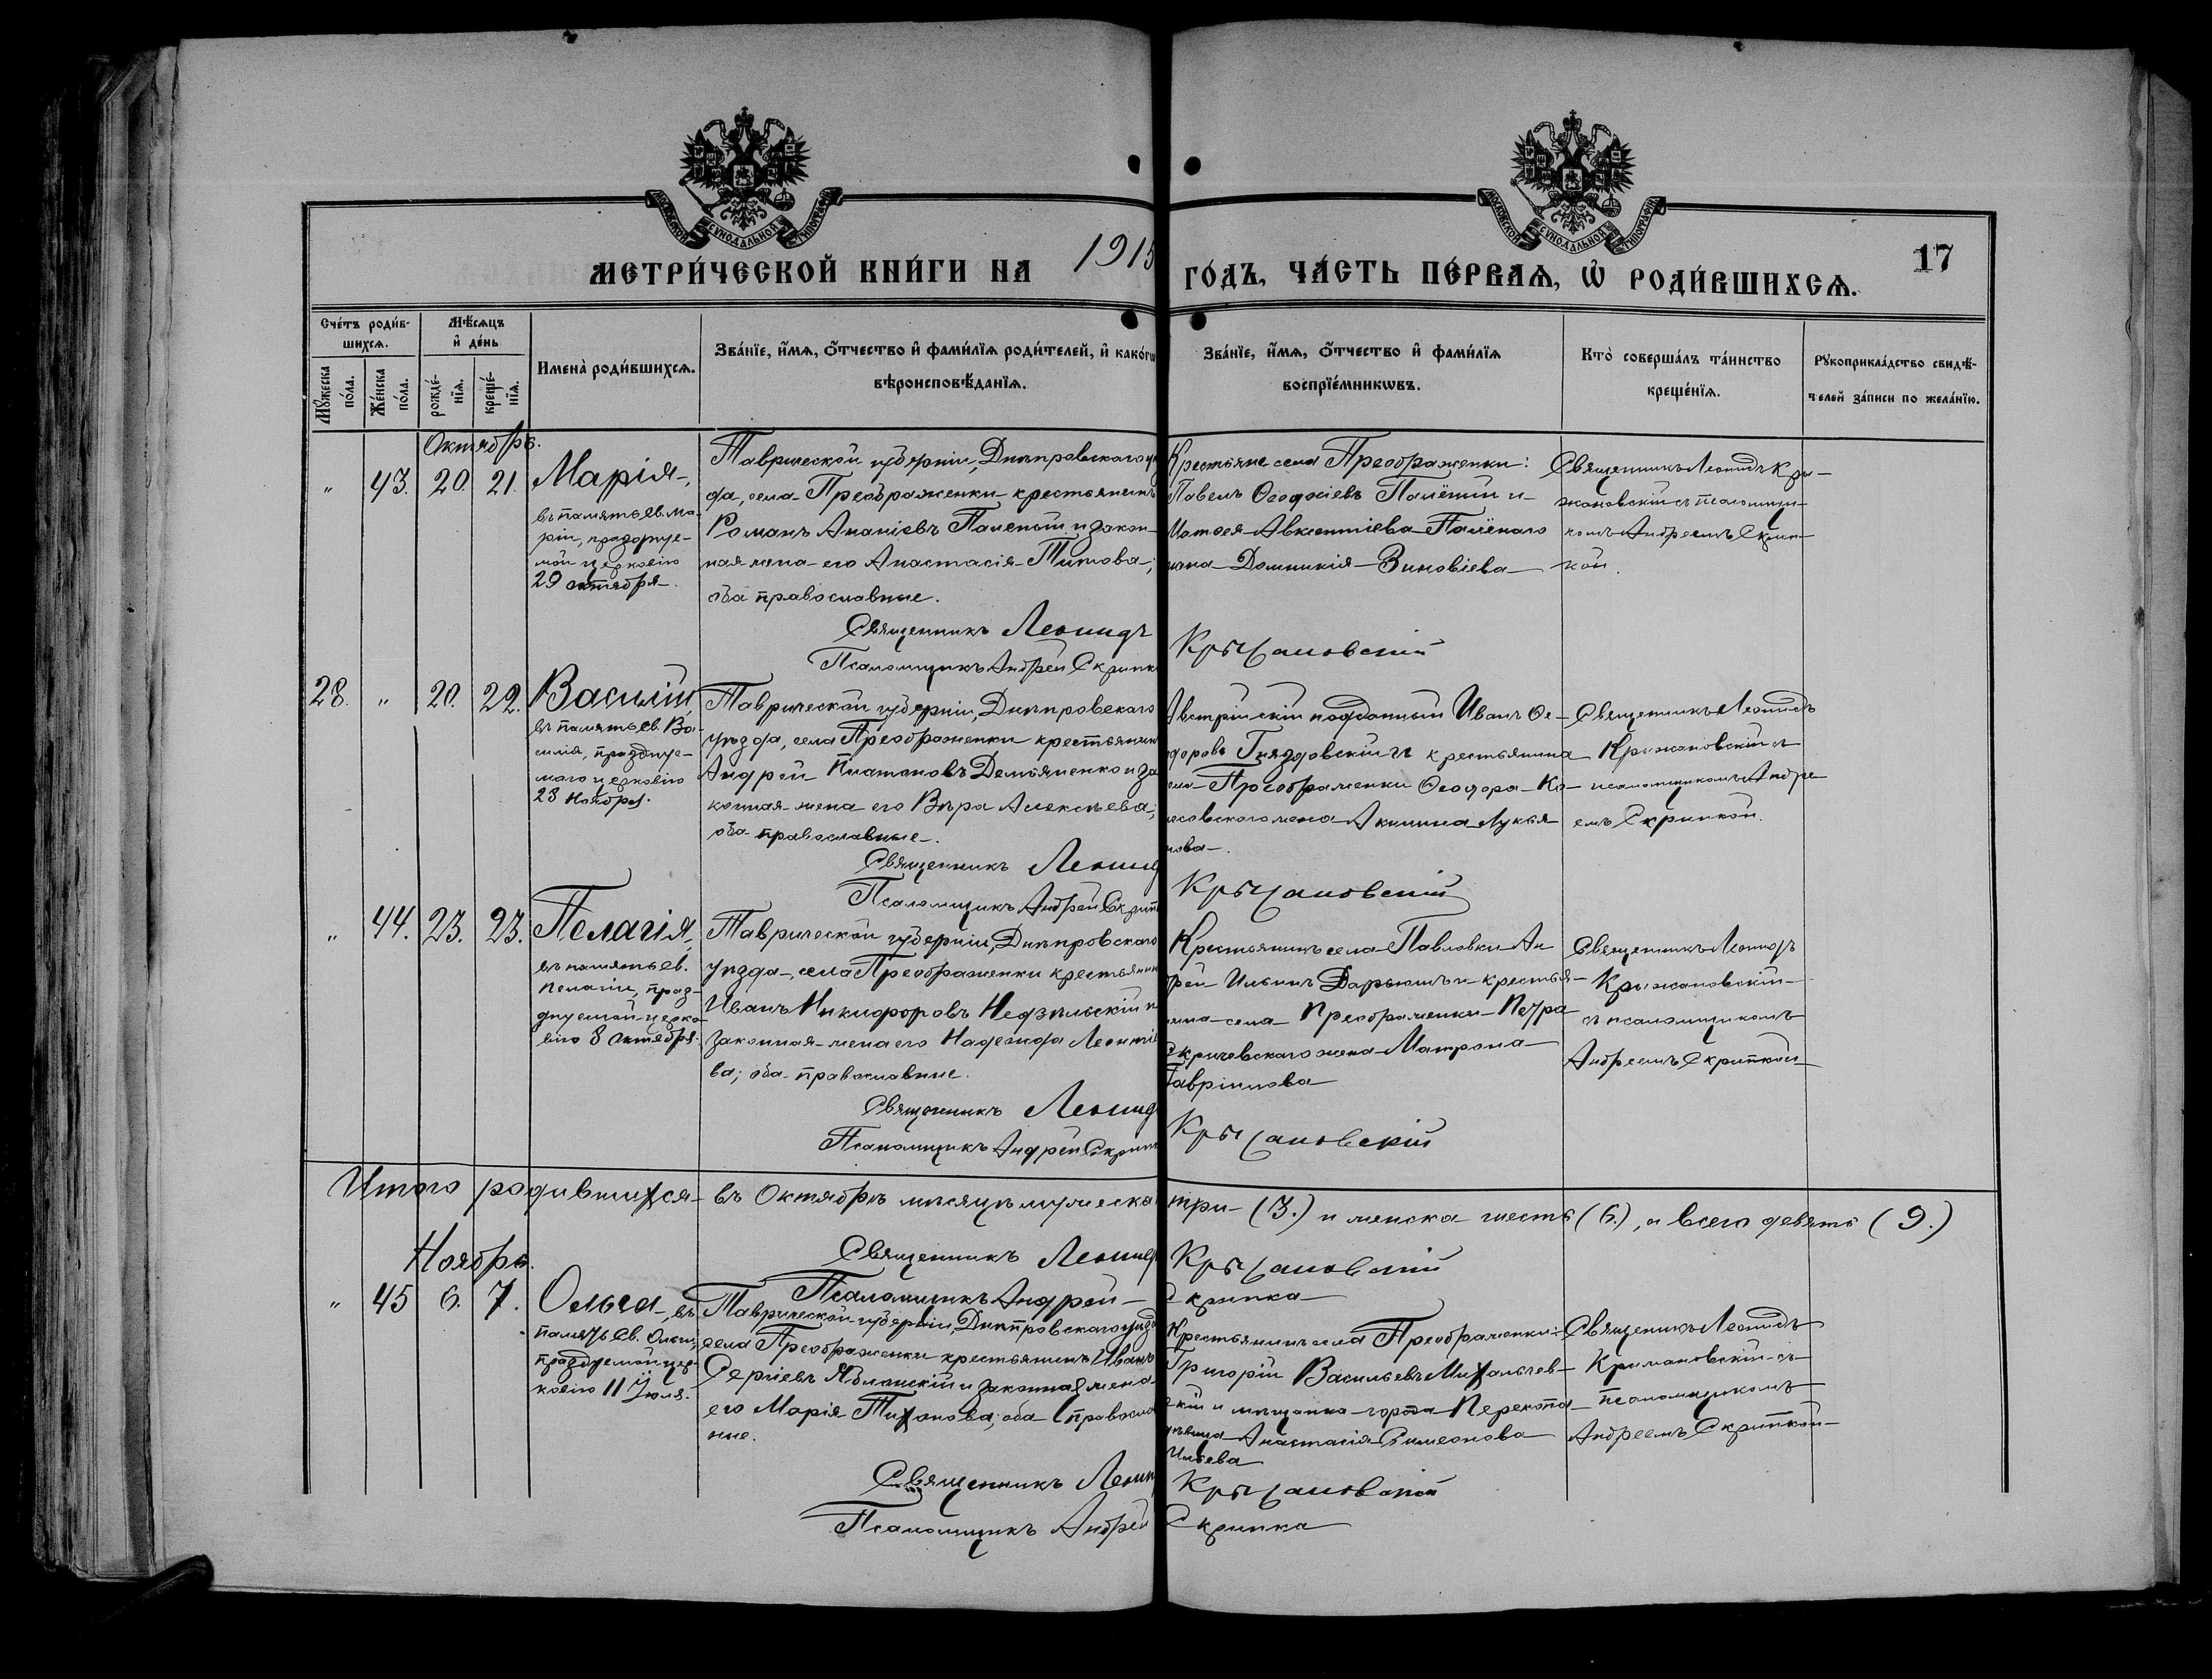 МОСКОВСКОЙ СѴНОДАЛЬНОЙ ТИПОГРАФІИ
МОСКОВСКОЙ СѴНОДАЛЬНОЙ ТИПОГРАФІИ
МЕТРИ́ЧЕСКОЙ КНИ́ГИ НА 1915 ГО́ДЪ, ЧА́СТЬ ПЕ́РВАѦ, Ѡ҆ РОДИ́ВШИХСѦ.
17
Сче́тъ роди́в-
шихсѧ.
Мꙋ́жеска
по́ла.
Же́нска
по́ла.
Мѣ́сѧцъ
и҆ де́нь
рожде́-
нїѧ.
креще́-
нїѧ.
Имена̀ роди́вшихсѧ.
Зва́нїе, и҆́мѧ, ѻ҆́тчество и҆ фами́лїѧ роди́телей, и҆ како́гѡ
вѣроисповѣ́данїѧ.
Зва́нїе, и҆́мѧ, ѻ҆́тчество и҆ фами́лїѧ
воспрїе́мникѡвъ.
Кто̀ соверша́лъ та́инство
креще́нїѧ.
Рꙋкоприкла́дство свидѣ́-
телей за́писи по жела́нїю.
Октябрь.
" 43. 20. 21.
Марія,
въ память св. Ма-
ріи, празднуе-
мой церковію
29 октября.
Таврической губерніи, Днѣпровскаго уѣ
да, села Преображенки крестьянинъ
Романъ Ананіевъ Паленый и закон-
ная жена его Анастасія Титова;
оба православные.
Крестьяне села Преображенки:
Павелъ Ѳеодосіевъ Палёный и
Авксентіева Палёнаго
жена Домникія Зиновіева
Священникъ Леонидъ Кры-
жановскій съ псаломщи-
комъ Андреемъ Скрип-
кой.
Священникъ Леонидъ Крыжановскій
Псаломщикъ Андрей Скрипк
28. " 20. 22.
Василій,
въ память св. Ва-
силія, праздnуе-
маго церковію
28 Ноября.
Таврической губерніи, Днѣпровскаго
уѣзда, села Преображенки крестьянин
Андрей Платоновъ Демьяненко и за
конная жена его Вѣра Алексѣева;
оба православные.
Австрійскій подданный Иванъ Ѳе-
доровъ Гнядовскій и крестьянина
села Преображенки Ѳеодора Ко-
совскаго жена Акилина Лукья
нова.
Священникъ Леонидъ
Крыжановскій съ
псаломщикомъ Андре
емъ Скрипкой.
Священникъ Леонид Крыжановскій
Псаломщикъ Андрей Скрип
" 44. 23. 23.
Пелагія,
въ память св.
Пелагіи, праз-
днуемой церко-
вію 8 Октября.
Таврической губерніи, Днѣпровскаго
уѣзда, села Преображенки крестьянин
Иванъ Никифоровъ Недѣльскій и
законная жена его Надежда Леонтіе
ва; оба православные.
Крестьянинъ села Павловки Ан
дрей Ильинъ и крестья-
нина села Преображенки Петра
Скричевскаго жена Матрона
Гавріилова
Священникъ Леонидъ
Крыжановскій
съ псаломщикомъ
Андреемъ Скрипкой
Священникъ Леонид Крыжановскій
Псаломщикъ Андрей Скрип
Итого родившихся въ Октябрѣ мѣсяцѣ мужеска три (3.) и женска шесть (6.), а всего девять (9.)
Священникъ Леонид Крыжановскій
Псаломщикъ Андрей Скрипка
Ноябрь.
" 45 6. 7.
Ольга, въ
память св. Ольги,
празднуемой цер-
ковію 11 Іюля.
Таврической губерніи, Днѣпровскаго уѣзда
села Преображенки крестьянинъ Иванъ
Сергіевъ Яблонскій и законная жена
его Марія Тихонова; оба православ
ные.
Крестьянинъ села Преображенки:
Григорій Васильевъ Михальчев-
скій и мѣщанка города Перекопа
дѣвица Анастасія Симеонова
Ильева
Священникъ Леонидъ
Крыжановскій съ
псаломщикомъ
Андреемъ Скрипкой
Священникъ Леони Крыжановскій
Псаломщикъ Андрей Скрипка